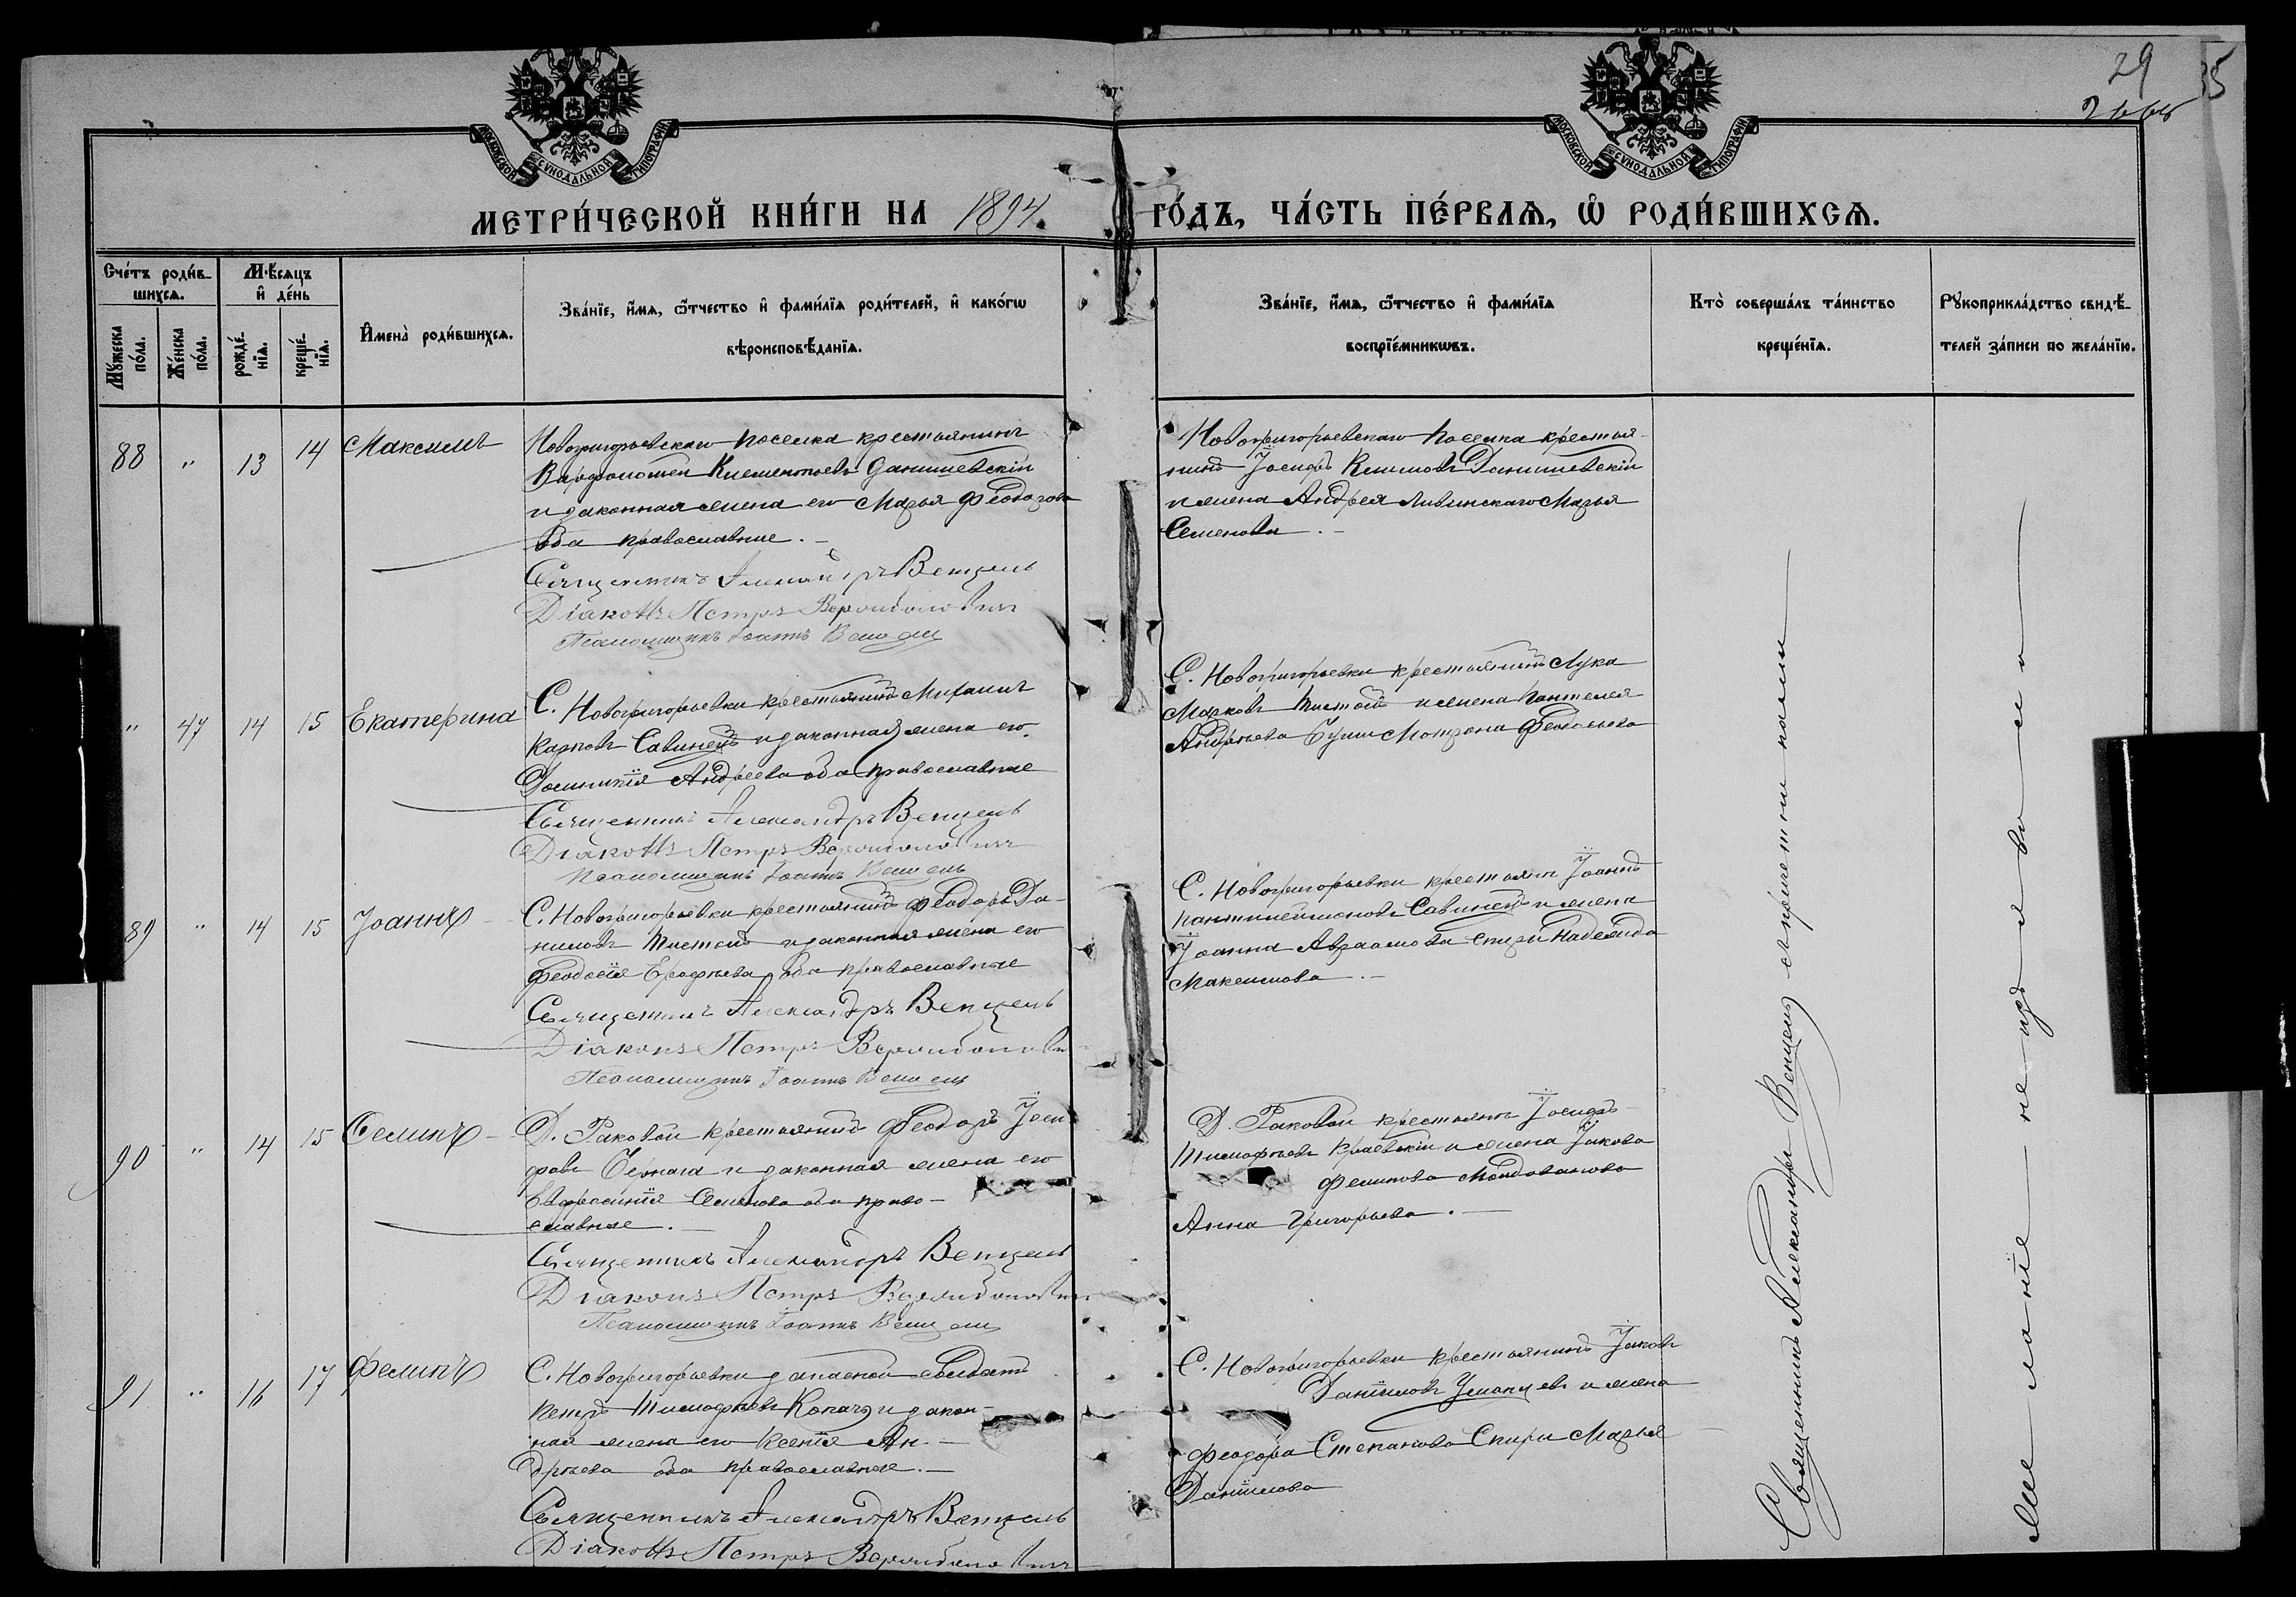 29
35
МОСКОВСКОЙ СѴНОДАЛЬНОЙ ТИПОГРАФІИ
МОСКОВСКОЙ СѴНОДАЛЬНОЙ ТИПОГРАФІИ
МЕТРИ́ЧЕСКОЙ КНИ́ГИ НА 1894. ГО́ДЪ, ЧА́СТЬ ПЕ́РВАѦ, Ѽ РОДИ́ВШИХСѦ.
Сче́тъ роди́в-
шихсѧ.
Мꙋ́жеска по́ла.
Же́нска по́ла.
Мѣ́сѧцъ
и҆ де́нь
рожде́-
нїѧ.
креще́-
нїѧ.
И҆мена̀ роди́вшихсѧ.
Зва́нїе, и҆́мѧ, ѻ҆́тчество и҆ фами́лїѧ роди́телей, и҆ како́гѡ
вѣроисповѣ́данїѧ.
Зва́нїе, и҆́мѧ, ѻ҆́тчество и҆ фами́лїѧ
воспрїе́мникѡвъ.
Кто̀ соверша́лъ та́инство
креще́нїѧ.
Рꙋкоприкла́дство свидѣ́-
телей за́писи по жела́нїю.
88 " 13 14 Максимъ
Новогригорьевскаго поселка крестьянинъ
Варфоломей Климентьевъ Данишевскій
и законная жена его Марья Феодорова
оба православные. –
Священникъ Александръ Венцель
Діаконъ Петръ
Псаломщикъ Іоаннъ Венцель
Новогригорьевскаго поселка крестья-
нинъ Іосифъ Климовъ Данишевскій
и жена Андрея Ливинскаго Марья
Семенова. –
" 47 14 15 Екатерина
С. Новогригорьевки крестьянинъ Михаилъ
Карповъ Савинецъ и законная жена его
Домникія Андреева оба православные
Священникъ Александръ Венцель
Діаконъ Петръ
Псаломщикъ Іоаннъ Венцель
С. Новогригорьевки крестьянинъ Лука
Марковъ Тистой и жена Пантелея
Андреева Мотрона
89 " 14 15 Іоаннъ
С. Новогригорьевки крестьянинъ Феодоръ Да-
ниловъ и законная жена его
Феодосія Ерофѣева оба православные
Священникъ Александръ Венцель
Діаконъ Петръ
Псаломщикъ Іоаннъ Венцель
С. Новогригорьевки крестьян Іоаннъ
Пантилеймоновъ Савинецъ и жена
Іоанна Авраамова Спири Надежда
Максимова. –
90 " 14 15 Семинъ
Д. Раковой крестьянинъ Феодоръ Іоси-
фовъ и законная жена его
Евфросинія Семенова оба право-
славные. –
Священникъ Александръ Венцель
Діаконъ Петръ
Псаломщикъ Іоаннъ Венцель
Д. Раковой крестьянъ Іосифъ
Тимофѣевъ Краевскій и жена Іакова
Филипова Молдованова
Анна Григорьева. –
91 " 16 17 Филипъ
С. Новогригорьевки запасной солдатъ
Петръ Тимофѣевъ Копачъ и закон-
ная жена его Ксенія Ан-
дрѣева оба православные. –
Священникъ Александръ Венцель
Діаконъ Петръ
С. Новогригорьевки крестьянинъ Іаковъ
Даніиловъ Уманцевъ и жена
Феодора Степанова Спири Марья
Даніилова
Священникъ Александръ Венцель съ причетниками
Желаніе не изъявили